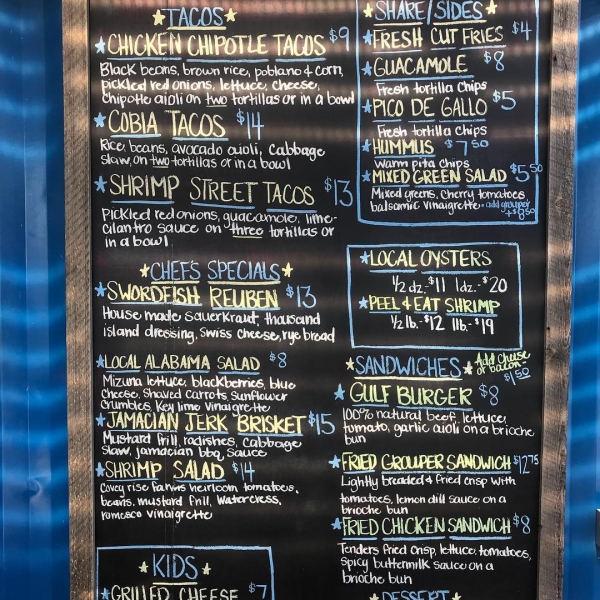 TACOS
CHICKEN CHIPOTLE TACOS $9
Black beans, brown rice, poblano & corn,
pickled red onions, lettuce, cheese,
chipotle aioli on two tortillas or in a bowl
COBIA TACOS $14
Rice, beans, avocado aioli, cabbage
slaw, on two tortillas or in a bowl
SHRIMP STREET TACOS $13
Pickled red onions, guacamole, lime-
cilantro sauce on three tortillas or
in a bowl
CHEFS SPECIALS
SWORDFISH REUBEN $13
House made sauerkraut, thousand
island dressing, swiss cheese, rye bread
LOCAL ALABAMA SALAD $8
Mizuna lettuce, blackberries, blue
cheese, shaved carrots sunflower
crumbles, Key lime vinaigrette
JAMACIAN JERK BRISKET $15
Mustard frill, radishes, cabbage
slaw, jamacian bbq sauce
SHRIMP SALAD $14
Covey rise farms heirloom tomatoes,
beans, mustard frill, watercress,
romesco vinaigrette
KIDS
GRILLED CHEESE $7
SHARE/SIDES
FRESH CUT FRIES $4
GUACAMOLE $8
Fresh tortilla chips
PICO DE GALLO $5
Fresh tortilla chips
HUMMUS $7.50
Warm pita chips
MIXED GREEN SALAD $5.50
Mixed greens, cherry tomatoes
balsamic vinaigrette - add grouper
+$8.50
LOCAL OYSTERS
1/2 dz. $11 1dz. $20
PEEL & EAT SHRIMP
1/2 lb. $12 1lb. $19
SANDWICHES Add cheese
or bacon
$1.50
GULF BURGER $8
100% natural beef, lettuce,
tomato, garlic aioli on a brioche
bun
FRIED GROUPER SANDWICH $12.75
Lightly breaded & fried crisp with
tomatoes, lemon dill sauce on a
brioche bun
FRIED CHICKEN SANDWICH $8
Tenders fried crisp, lettuce, tomatoes,
spicy buttermilk sauce on a
brioche bun
DESSERT